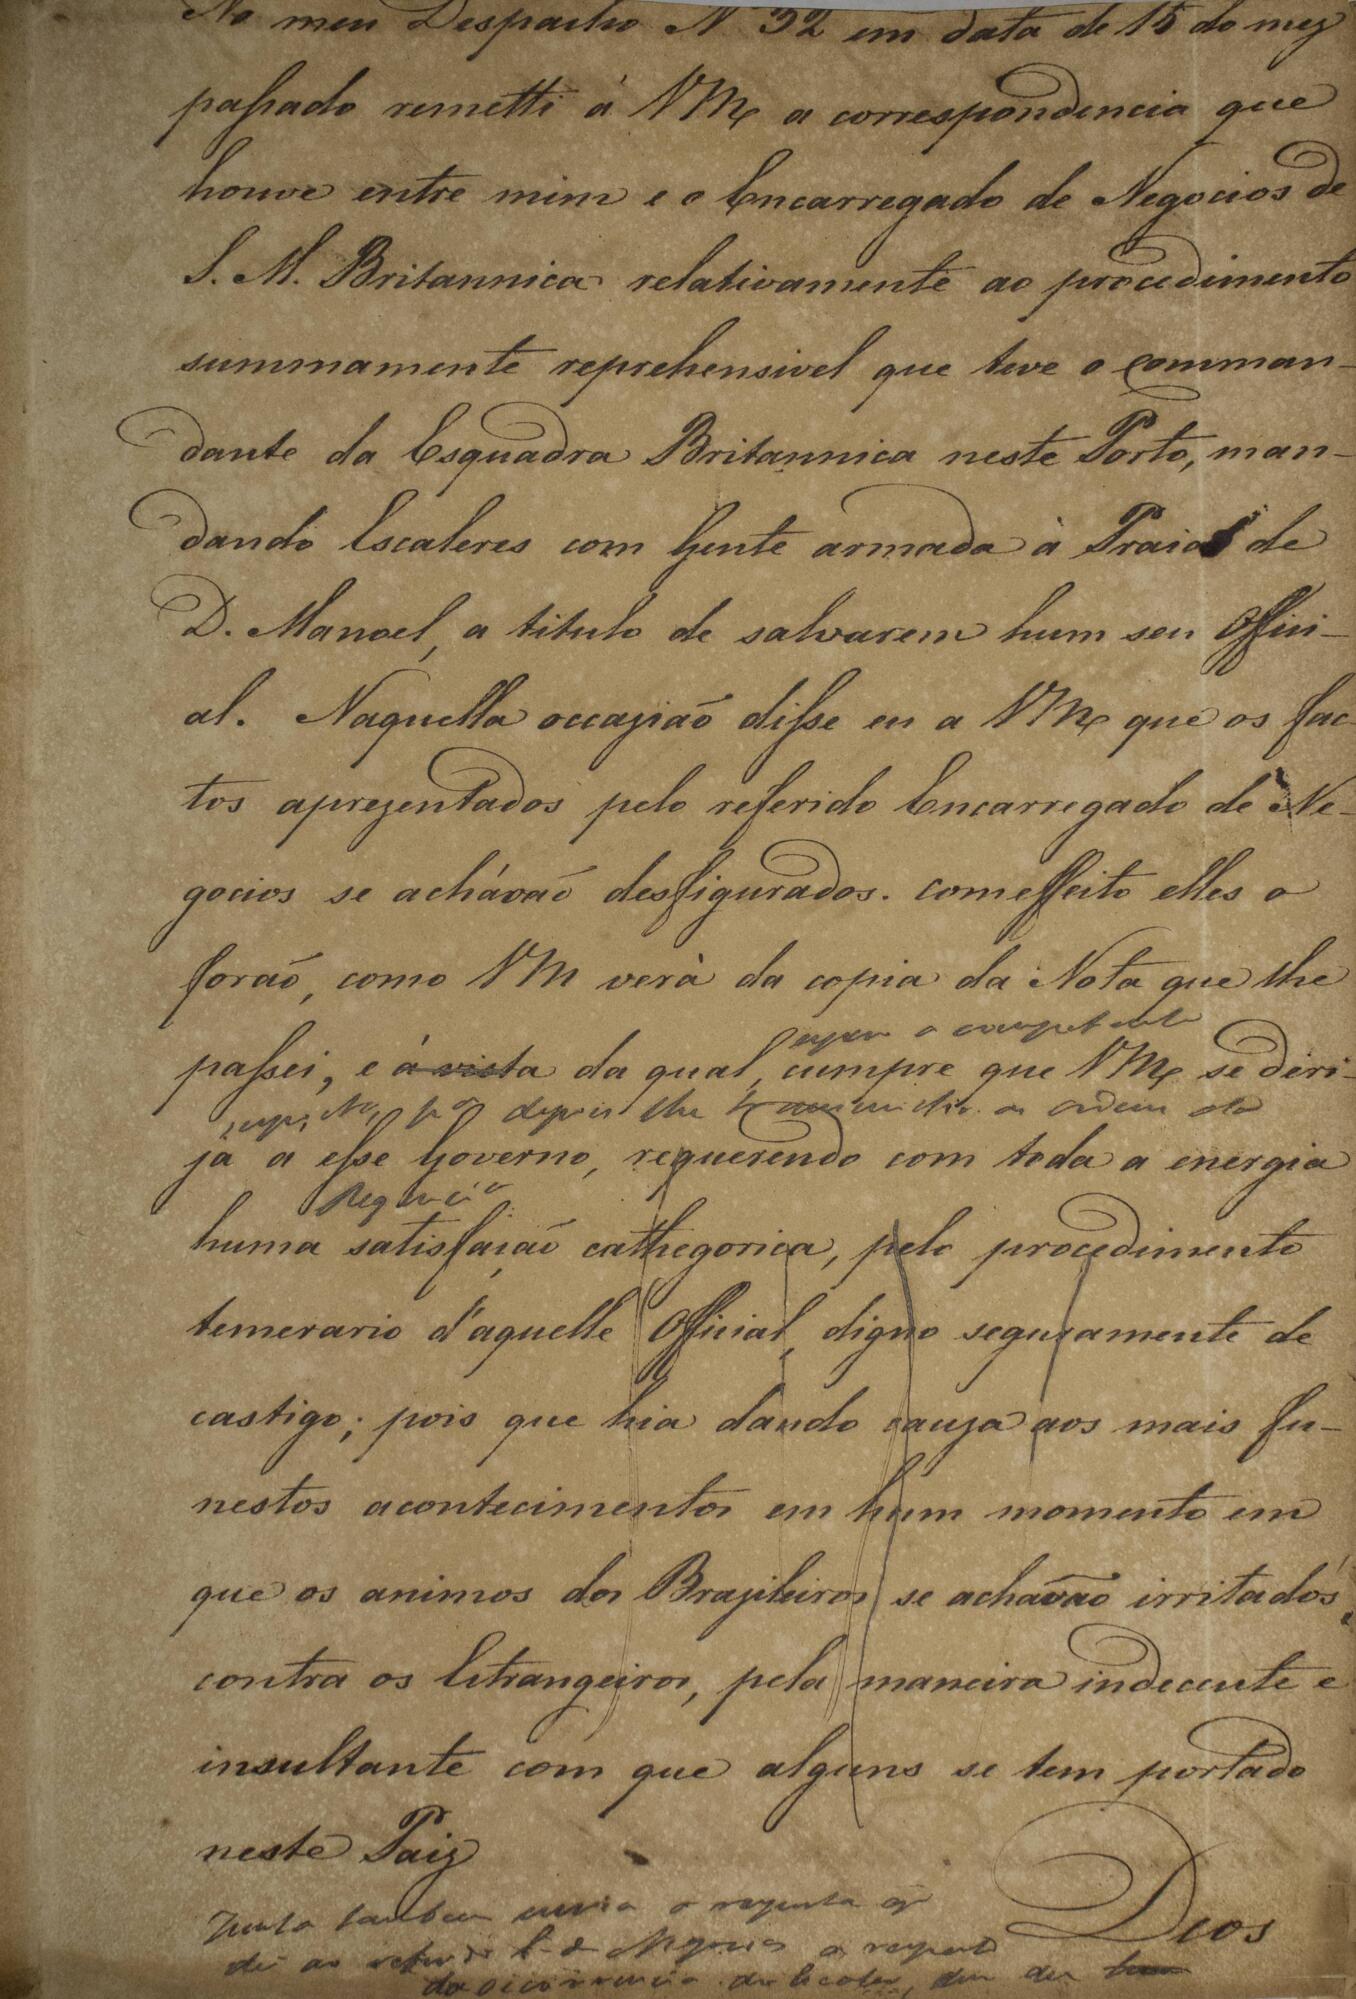 No meu Despacho N 32 em data de 15 do mez
passado remetti á VMce a correspondencia que
houve entre mim e o Encarregado de Negocios de
S. M. Britannica relativamente ao procedimento
summamente reprehensivel que teve o comman-
dante da Esquadra Britannica neste Porto, man-
dando Escaleres com gente armada à Praia de
D. Manoel, a titulo de salvarem hum seu Offici-
al. Naquella occazião disse eu a VMce que os fac
tos aprezentados pelo referido Encarregado de Ne-
gocios se achávão desfigurados. com effeito elles o
forão, como VM verà da copia da Nota que lhe
o competente
passei, e á vista da qual, cumpre que VMce se diri-
depois lhe as ordens da
ja a esse Governo, requerendo com toda a energia
Regencia
huma satisfaição cathegorica, pelo procedimento
temerario d'aquelle Official, digno seguramente de
castigo; pois que hia dando cauza aos mais fu-
nestos acontecimentos em hum momento em
que os animos dos Brazileiros se achavão irritados
contra os Estrangeiros, pela maneira indecente e
insultante com que alguns se tem portado
neste Paiz
Deos
Junto tambem envio a resposta q
dei ao referido E. de Negocios a respeito
da occorrencia